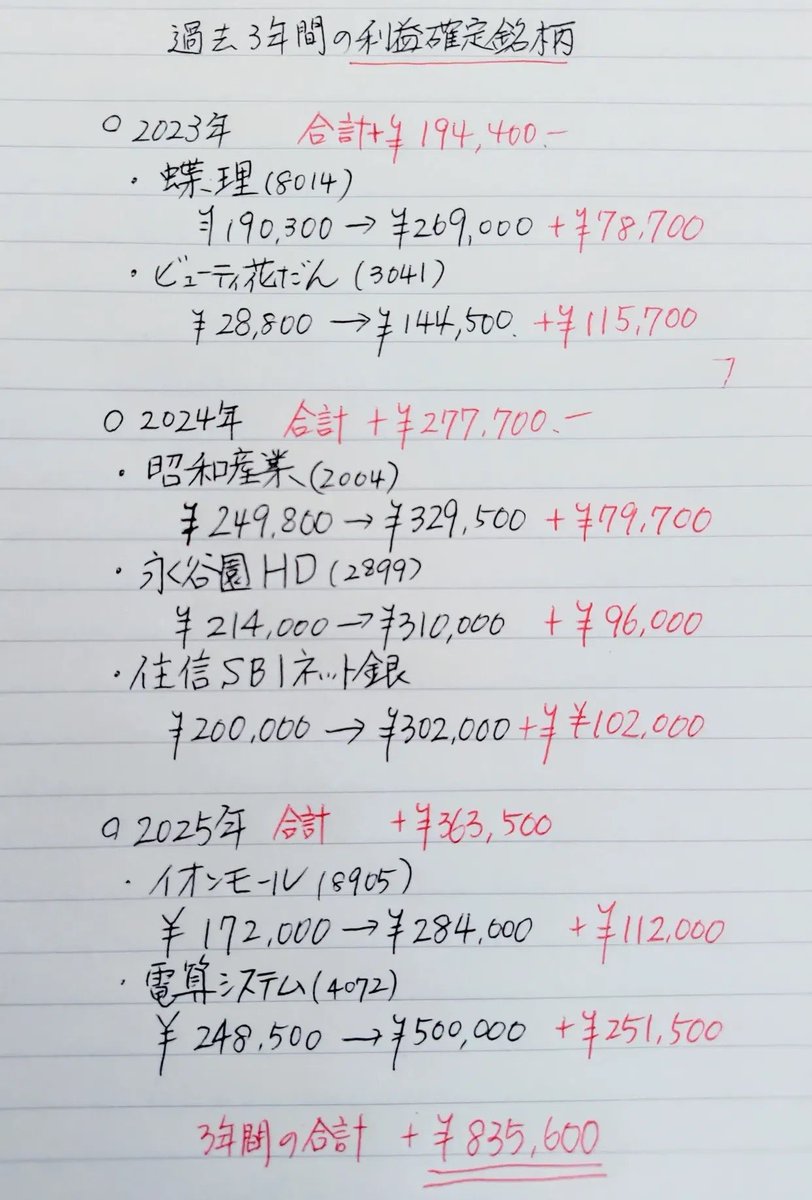 過去3年間の利益確定銘柄
○2023年 合計+¥194,400.-
・蝶理(8014)
¥190,300→¥269,000 +¥78,700
・ビューティ花だん(3041)
¥28,800→¥144,500. +¥115,700
○2024年 合計+¥277,700.-
・昭和産業(2004)
¥249,800→¥329,500 +¥79,700
・永谷園HD(2899)
¥214,000→¥310,000 +¥96,000
・住信SBIネット銀
¥200,000→¥302,000+¥¥102,000
○2025年 合計 +¥363,500
・イオンモール(8905)
¥172,000→¥284,000 +¥112,000
・電算システム(4072)
¥248,500→¥500,000 +¥251,500
3年間の合計 +¥835,600